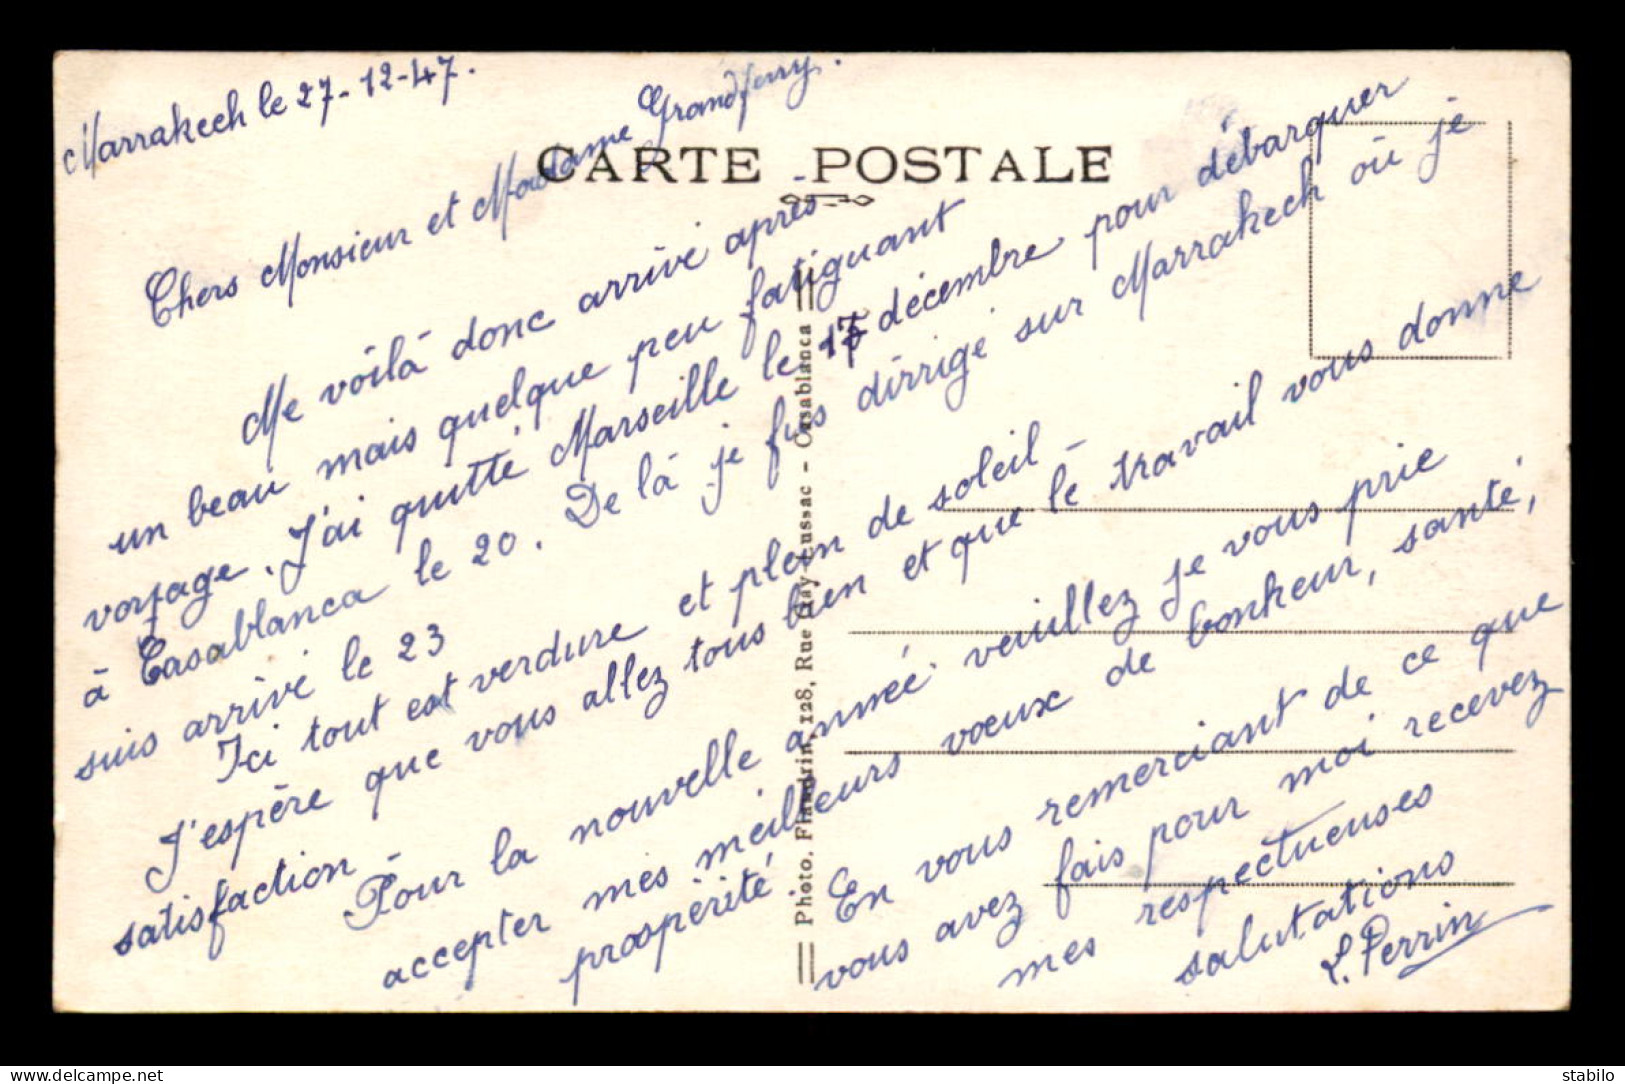 Marrakech le 27-12-47.
Chers Monsieur et Madame Grandferry.
CARTE POSTALE
Me voilà donc arrivé après
un beau mais quelque peu fatiguant
voyage. J'ai quitté Marseille le 17 décembre pour débarquer
à Casablanca le 20. De là je fus dirrigé sur Marrakech où je
suis arrivé le 23
Ici tout est verdure et plein de soleil -
J'espère que vous allez tous bien et que le travail vous donne
satisfaction -
Pour la nouvelle année veuillez je vous prie
accepter mes meilleurs voeux de bonheur, santé,
prospérité
En vous remerciant de ce que
vous avez fais pour moi recevez
mes respectueuses
salutations
L. Perrin
Photo. Flandrin, 128, Rue Gay-Lussac - Casablanca
www.delcampe.net
stabilo